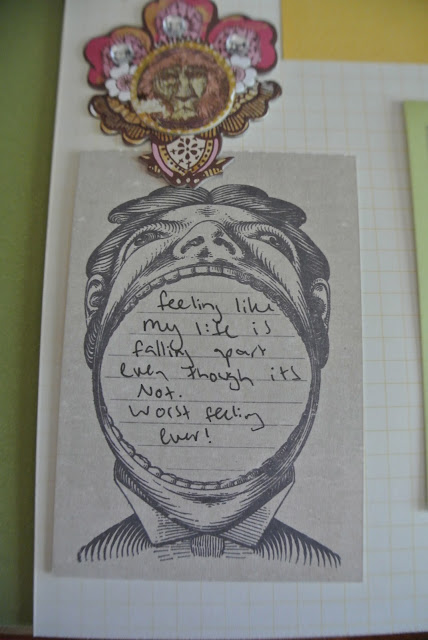 feeling like
my life is
falling apart
even though its
Not.
Worst feeling
Ever!